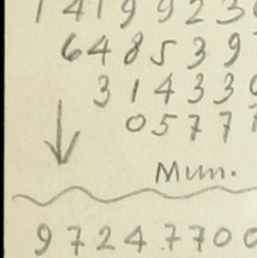 1 4 1 9 9 2 3
6 4 8 5 3 9
3 1 4 3 3
0 5 7 7
Mun.
9 7 2 4 7 7 0 0